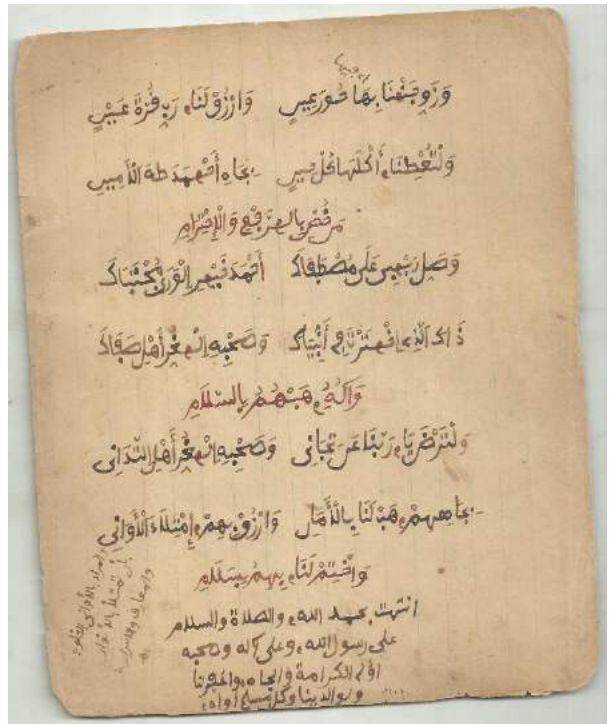 وَزَوِّجَنَّنَا بِهَا حُورَ عِينِ وَارْزُقْ لَنَا رَبِّ قُرَّةَ عَيْنِ
وَلْتُعْطِنَا أُكْلَهَا كُلَّ حِينِ بِجَاهِ أَحْمَدَ طَهَ الْأَمِينِ
وَصَلِّ رَبِّي عَلَى مُصْطَفَاكَ أَحْمَدَ خَيْرِ الْوَرَى مُجْتَبَاكَ
ذَاكَ الَّذِي أَنْبِيَاكَ وَصَحْبِهِ الْغُرِّ أَهْلِ صَفَاكَ
وَآلِهِ بِالسَّلَامِ
وَلْتَرْضَ يَا رَبَّنَا عَنْ تِجَانِي وَصَحْبِهِ الْغُرِّ أَهْلِ التَّدَانِي
بِجَاهِهِمْ هَبْ لَنَا بِالْأَمَانِ وَارْزُقْ بِهِمْ إِمْتِلَاءَ الْأَوَانِي
وَاخْتِمْ لَنَا بِهِمْ بِسَلَامِ
انتهت بحمد الله والصلاة والسلام
على رسول الله وعلى آله وصحبه
أولي الكرامة والجاه واغفر لنا
ولوالدينا وكل مسلم أواه